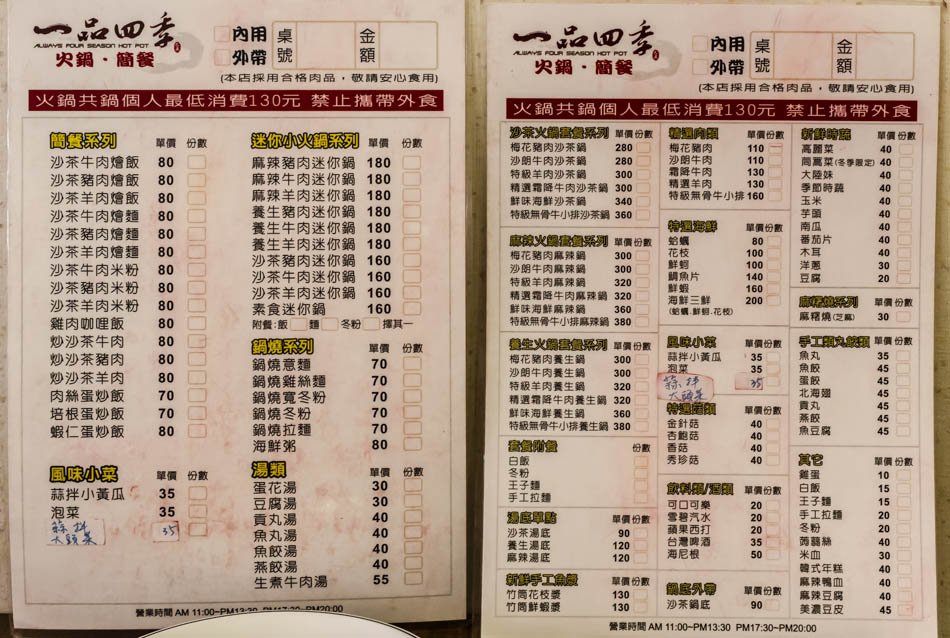 一品四季
ALWAYS FOUR SEASON HOT POT
火鍋·簡餐
內用
外帶
桌號
金額
(本店採用合格肉品，敬請安心食用)
火鍋共鍋個人最低消費130元 禁止攜帶外食
簡餐系列 單價 份數
沙茶牛肉燴飯 80
沙茶豬肉燴飯 80
沙茶羊肉燴飯 80
沙茶牛肉燴麵 80
沙茶豬肉燴麵 80
沙茶羊肉燴麵 80
沙茶牛肉米粉 80
沙茶豬肉米粉 80
沙茶羊肉米粉 80
雞肉咖哩飯 80
炒沙茶牛肉 80
炒沙茶豬肉 80
炒沙茶羊肉 80
肉絲蛋炒飯 70
培根蛋炒飯 70
蝦仁蛋炒飯 80
風味小菜 單價 份數
蒜拌小黃瓜 35
泡菜 35
蒜拌大頭菜 35
迷你小火鍋系列 單價 份數
麻辣豬肉迷你鍋 180
麻辣牛肉迷你鍋 180
麻辣羊肉迷你鍋 180
養生豬肉迷你鍋 180
養生牛肉迷你鍋 180
養生羊肉迷你鍋 180
沙茶豬肉迷你鍋 160
沙茶牛肉迷你鍋 160
沙茶羊肉迷你鍋 160
素食迷你鍋 160
附餐:飯 麵 冬粉 擇其一
鍋燒系列 單價 份數
鍋燒意麵 70
鍋燒雞絲麵 70
鍋燒寬冬粉 70
鍋燒冬粉 70
鍋燒拉麵 70
海鮮粥 80
湯類 單價 份數
蛋花湯 30
豆腐湯 30
貢丸湯 40
魚丸湯 40
魚餃湯 40
燕餃湯 40
生煮牛肉湯 55
營業時間 AM 11:00~PM13:30 PM17:30~PM20:00
一品四季
ALWAYS FOUR SEASON HOT POT
火鍋·簡餐
內用
外帶
桌號
金額
(本店採用合格肉品，敬請安心食用)
火鍋共鍋個人最低消費130元 禁止攜帶外食
沙茶火鍋套餐系列 單價 份數
梅花豬肉沙茶鍋 280
沙朗牛肉沙茶鍋 280
特級羊肉沙茶鍋 300
精選霜降牛肉沙茶鍋 300
鮮味海鮮沙茶鍋 340
特級無骨牛小排沙茶鍋 360
麻辣火鍋套餐系列 單價 份數
梅花豬肉麻辣鍋 300
沙朗牛肉麻辣鍋 300
特級羊肉麻辣鍋 320
精選霜降牛肉麻辣鍋 320
鮮味海鮮麻辣鍋 360
特級無骨牛小排麻辣鍋 380
養生火鍋套餐系列 單價 份數
梅花豬肉養生鍋 300
沙朗牛肉養生鍋 300
特級羊肉養生鍋 320
精選霜降牛肉養生鍋 320
鮮味海鮮養生鍋 360
特級無骨牛小排養生鍋 380
套餐附餐 份數
白飯
冬粉
王子麵
手工拉麵
湯底單點 單價 份數
沙茶湯底 90
養生湯底 120
麻辣湯底 120
新鮮手工魚漿 單價 份數
竹筒花枝漿 130
竹筒鮮蝦漿 130
精選肉類 單價 份數
梅花豬肉 110
沙朗牛肉 110
霜降牛肉 130
精選羊肉 130
特級無骨牛小排 160
特選海鮮 單價 份數
蛤蠣 80
花枝 100
鮮蚵 100
鯛魚片 140
鮮蝦 160
海鮮三鮮 200
(蛤蠣.鮮蚵.花枝)
風味小菜 單價 份數
蒜拌小黃瓜 35
泡菜 35
蒜拌大頭菜 35
特選菇類 單價 份數
金針菇 40
杏鮑菇 40
香菇 40
秀珍菇 40
飲料類/酒類 單價 份數
可口可樂 20
雪碧汽水 20
蘋果西打 20
台灣啤酒 35
海尼根 50
鍋底外帶 單價 份數
沙茶鍋底 90
新鮮時蔬 單價 份數
高麗菜 40
茼萵菜(冬季限定) 40
大陸妹 40
季節時蔬 40
玉米 40
芋頭 40
南瓜 40
番茄片 40
木耳 40
洋蔥 30
豆腐 20
麻糬燒系列 單價 份數
麻糬燒(芝麻) 30
手工類丸餃類 單價 份數
魚丸 35
魚餃 45
蛋餃 45
北海翅 45
貢丸 45
燕餃 45
魚豆腐 45
其它 單價 份數
雞蛋 10
白飯 15
王子麵 15
手工拉麵 20
冬粉 20
蒟蒻絲 40
米血 30
韓式年糕 40
麻辣鴨血 40
麻辣豆腐 40
美濃豆皮 45
營業時間 AM 11:00~PM13:30 PM17:30~PM20:00